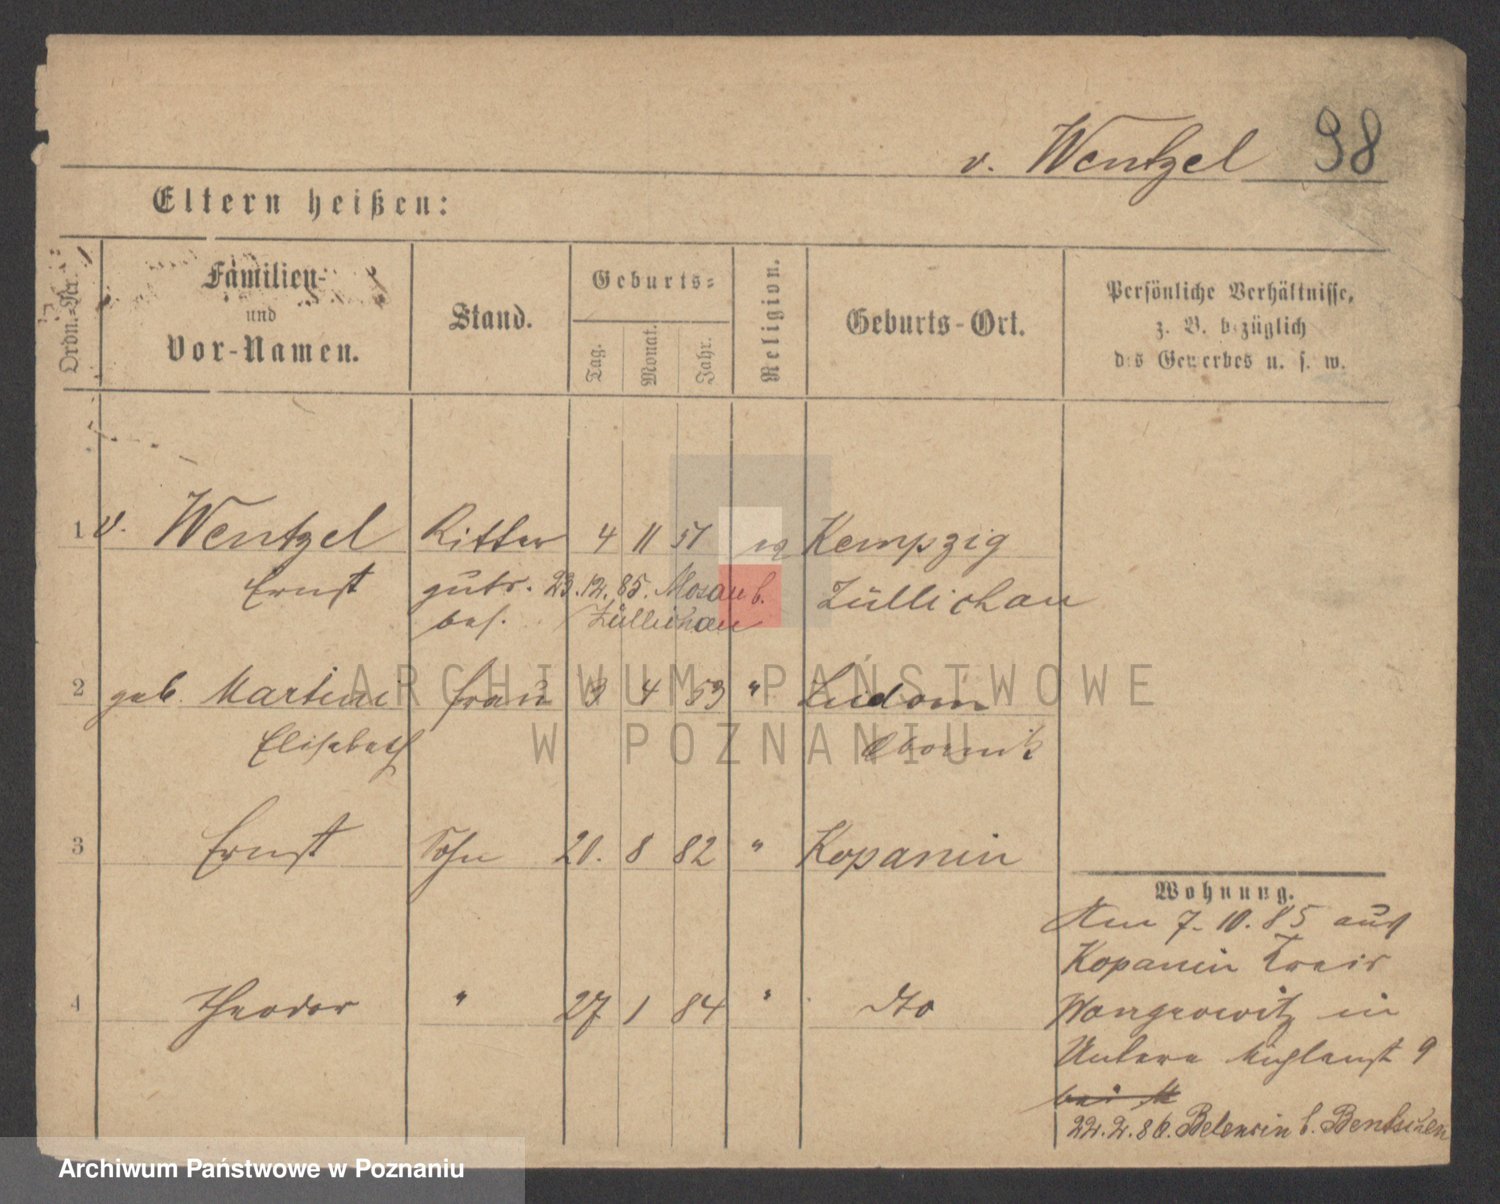 v. Wentzel 98
Eltern heißen:
Ordn.-Nr.
Familien-
und
Vor-Namen.
Stand.
Geburts-
Tag.
Monat.
Jahr.
Religion.
Geburts-Ort.
Persönliche Verhältnisse,
z. B. bezüglich
des Gewerbes u. s. w.
1 v. Wentzel Ritter 4 11 51 ev Kempzig
Ernst guts. 23.12.85. Mosau b. Züllichau
bes. Züllichau
2 geb. Martini Frau 3 4 59 " Ludom
Elisabeth Obornik
3 Ernst Sohn 20. 8 82 " Kopanin
4 Theodor " 27 1 84 " dto
Wohnung.
Am 7.10.85 aus
Kopanin Kreis
Wongrowitz in
Untere Mühlenst 9
bei
22.2.86. Belencin b. Bentschen
ARCHIWUM PAŃSTWOWE
W POZNANIU
Archiwum Państwowe w Poznaniu